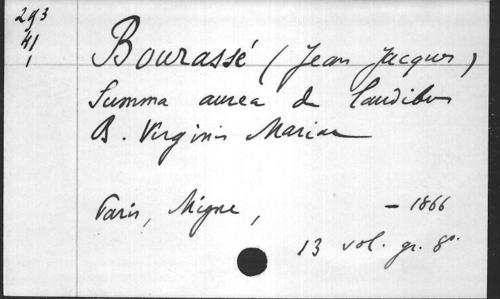 293
41
1
Bourassé (Jean Jacques)
Summa aurea de laudibus
B. Virginis Mariae
Paris, Migne, - 1866
13 vol. gr. 8º.